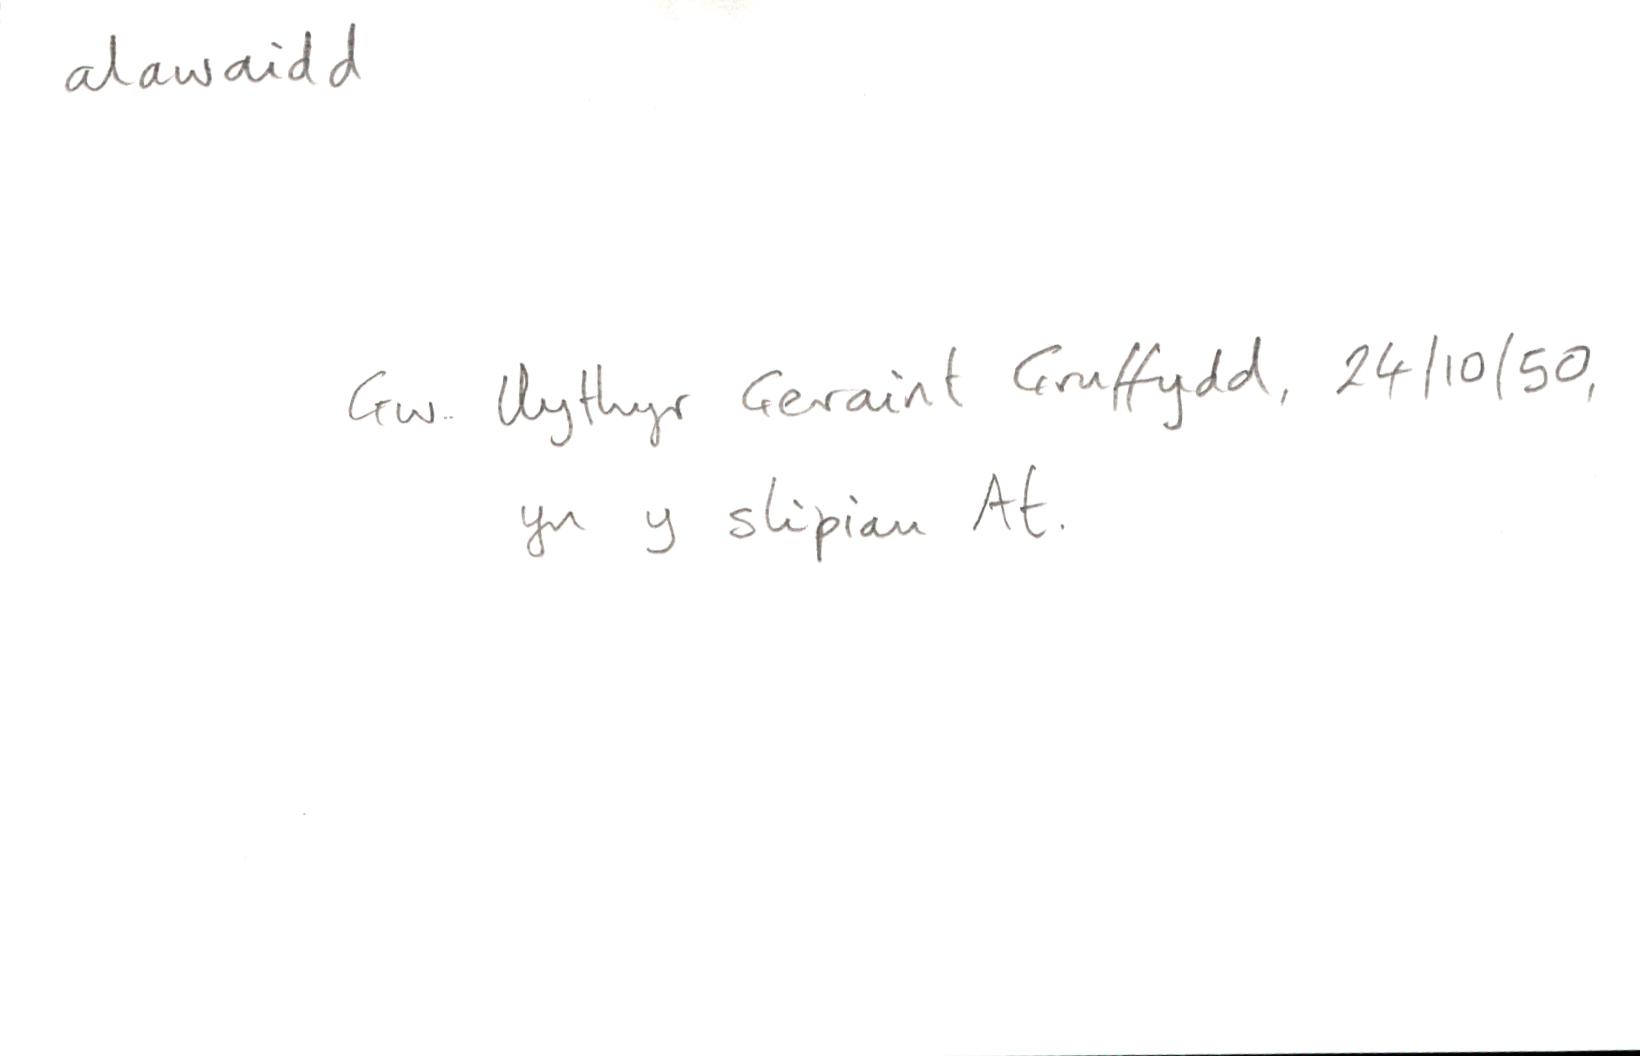 alawaidd
Gw. llythyr Geraint Gruffydd, 24/10/50,
yn y slipiau At.